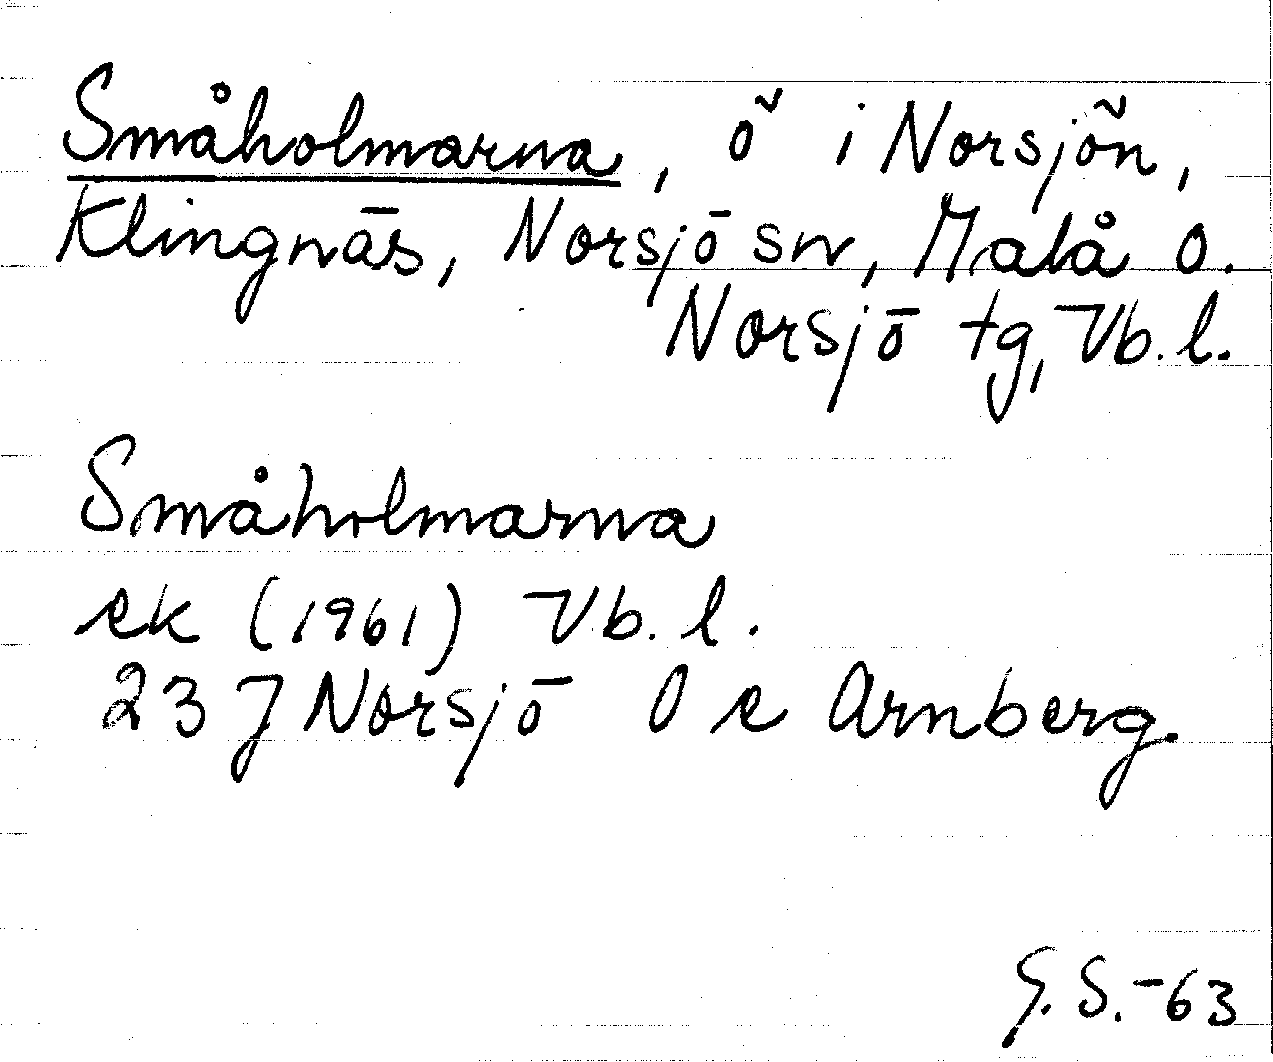 Småholmarna, ö i Norsjön,
Klingnäs, Norsjö sn, Malå o.
Norsjö tg, Vb. l.
Småholmarna
ek (1961) Vb. l.
23 J Norsjö O e Arnberg.
G. S. -63